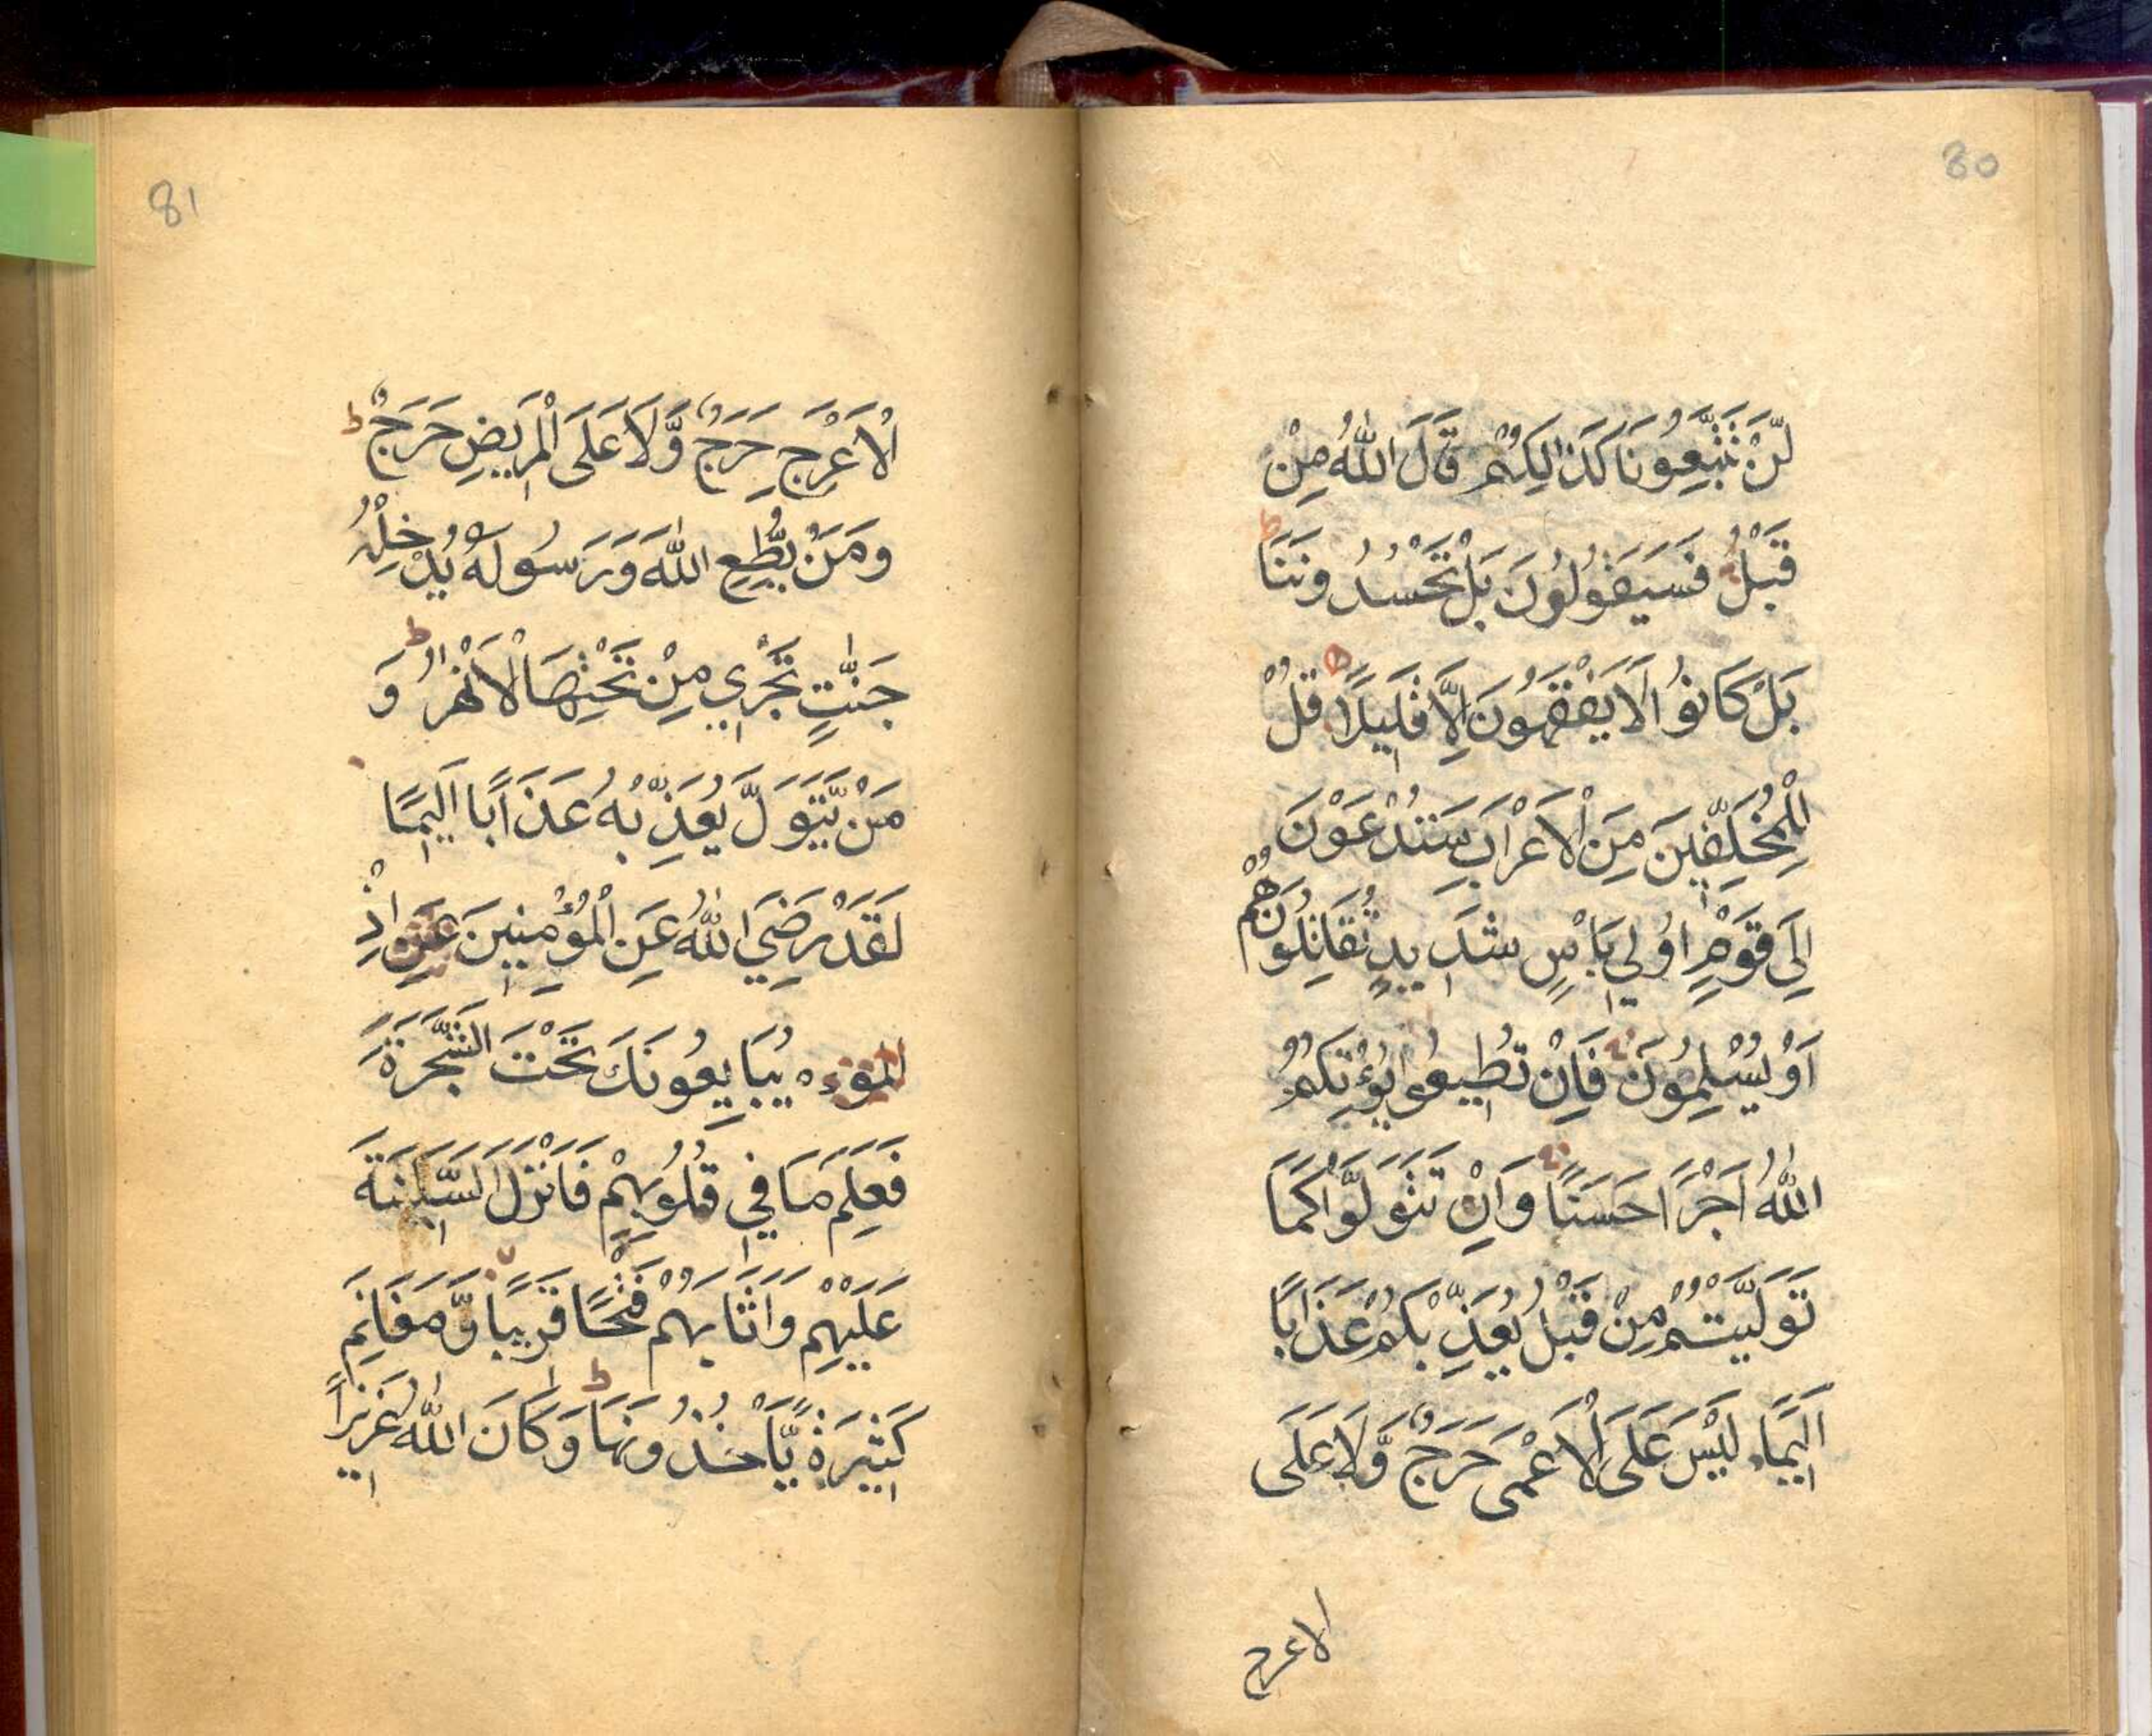 80
لَّنْ تَتَّبِعُونَا كَذَالِكُمْ قَالَ اللّٰهُ مِنْ
قَبْلُ فَسَيَقُوْلُوْنَ بَلْ تَحْسُدُوْنَنَا ط
بَلْ كَانُوْا لَا يَفْقَهُوْنَ اِلَّا قَلِيْلًا ۝ قُلْ
لِّلْمُخَلَّفِيْنَ مِنَ الْاَعْرَابِ سَتُدْعَوْنَ
اِلٰى قَوْمٍ اُولِي بَاْسٍ شَدِيْدٍ تُقَاتِلُوْنَهُمْ
اَوْ يُسْلِمُوْنَ فَاِنْ تُطِيْعُوا يُؤْتِكُمُ
اللّٰهُ اَجْرًا حَسَنًا وَاِنْ تَتَوَلَّوْا كَمَا
تَوَلَّيْتُمْ مِنْ قَبْلُ يُعَذِّبْكُمْ عَذَابًا
اَلِيْمًا لَيْسَ عَلَى الْاَعْمٰى حَرَجٌ وَّلَا عَلَى
الاعرج
81
الْاَعْرَجِ حَرَجٌ وَّلَا عَلَى الْمَرِيْضِ حَرَجٌ ط
وَمَنْ يُّطِعِ اللّٰهَ وَرَسُوْلَهٗ يُدْخِلْهُ
جَنّٰتٍ تَجْرِي مِنْ تَحْتِهَا الْاَنْهٰرُ ط وَ
مَنْ يَّتَوَلَّ يُعَذِّبْهُ عَذَابًا اَلِيْمًا
لَقَدْ رَضِيَ اللّٰهُ عَنِ الْمُؤْمِنِيْنَ عَنِ اِذْ
المؤ يُبَايِعُوْنَكَ تَحْتَ الشَّجَرَةِ
فَعَلِمَ مَا فِي قُلُوْبِهِمْ فَاَنْزَلَ السَّكِيْنَةَ
عَلَيْهِمْ وَاَثَابَهُمْ فَتْحًا قَرِيْبًا وَّمَغَانِمَ
كَثِيْرَةً يَّاْخُذُوْنَهَا ط وَكَانَ اللّٰهُ عَزِيْزًا